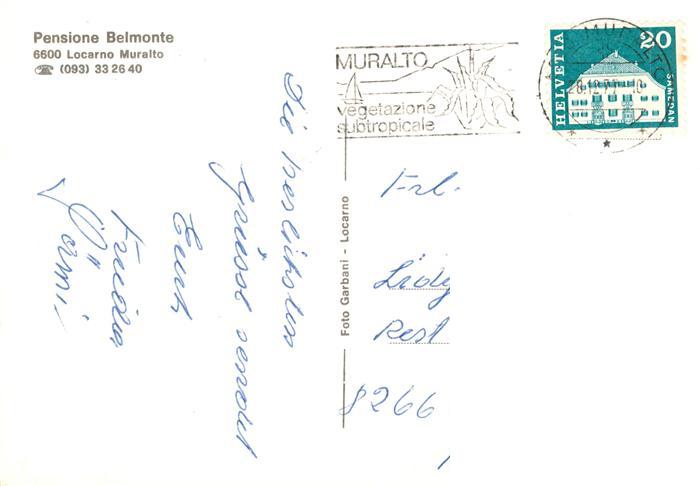 Pensione Belmonte
6600 Locarno Muralto
☎ (093) 33 26 40
MURALTO
vegetazione
subtropicale
HELVETIA
20
SAMEDAN
28.12.77
Die herzlichsten
Grüsse sendet
Euch
Foto Garbani - Locarno
Frl.
Lidy
Rest
8266